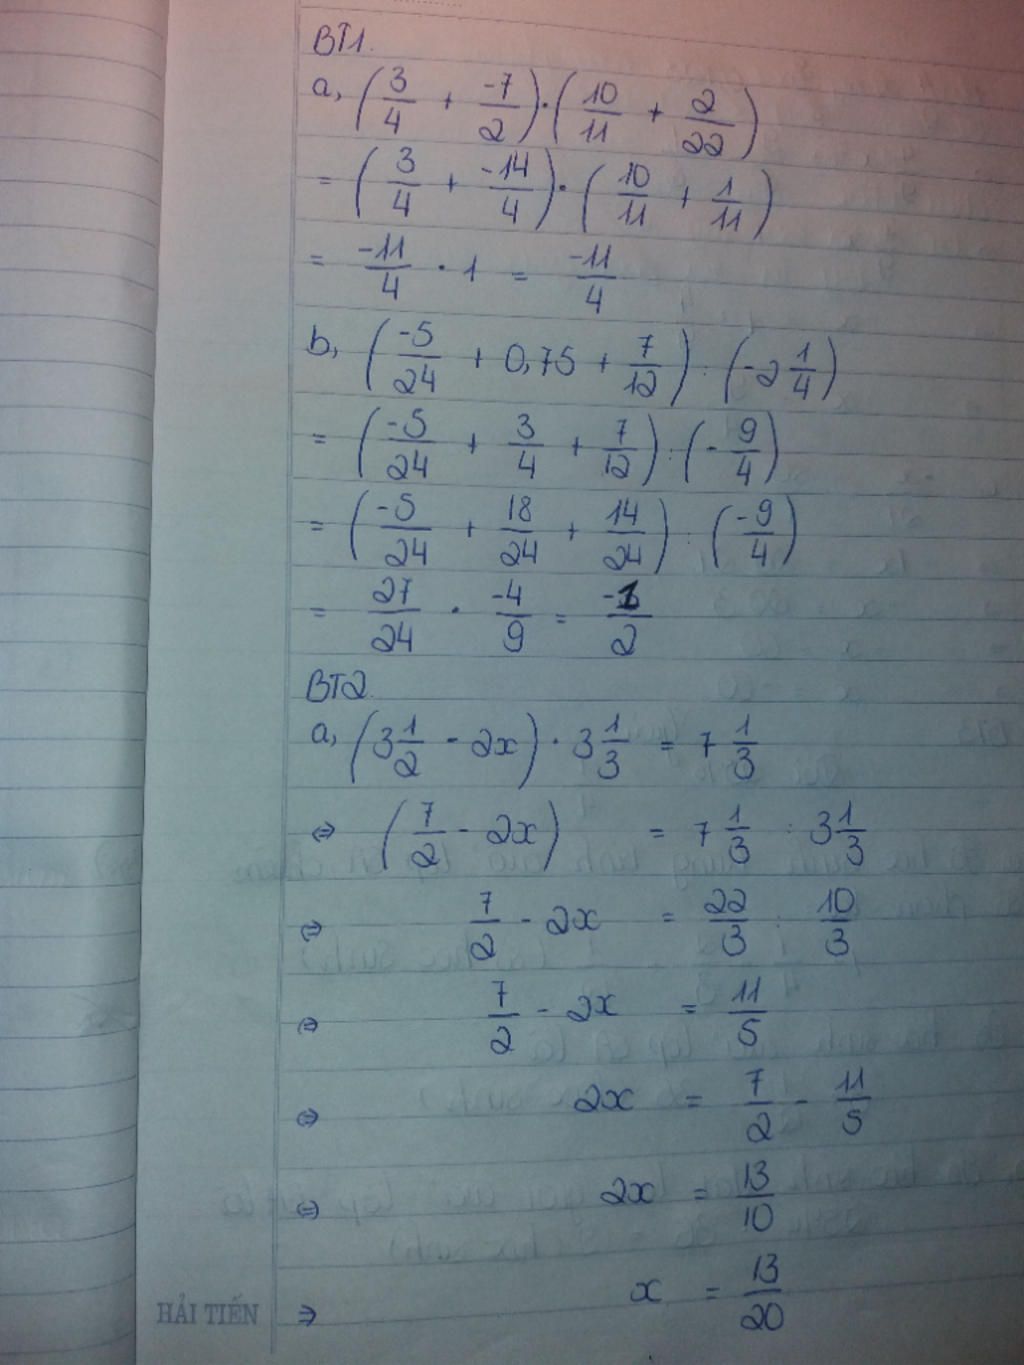 BT1.
a, (3/4 + -7/2) · (10/11 + 2/22)
= (3/4 + -14/4) · (10/11 + 1/11)
= -11/4 · 1 = -11/4
b, (-5/24 + 0,75 + 7/12) : (-2 1/4)
= (-5/24 + 3/4 + 7/12) : (-9/4)
= (-5/24 + 18/24 + 14/24) : (-9/4)
= 27/24 · -4/9 = -1/2
BT2.
a, (3 1/2 - 2x) · 3 1/3 = 7 1/3
⇔ (7/2 - 2x) = 7 1/3 : 3 1/3
⇔ 7/2 - 2x = 22/3 : 10/3
⇔ 7/2 - 2x = 11/5
⇔ 2x = 7/2 - 11/5
⇔ 2x = 13/10
⇒ x = 13/20
HẢI TIẾN